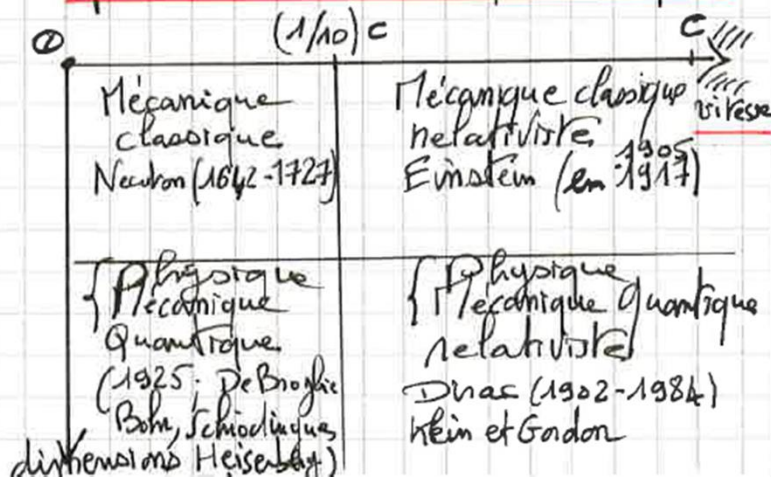 O (1/10) c c
vitesse
Mécanique
classique
Newton (1642-1727)
Mécanique classique
relativiste
1905
Einstein (en 1917)
{ Physique
Mécanique
Quantique
(1925: De Broglie
Bohr, Schrodinguer
dimensions Heisenberg)
{ Physique
Mécanique Quantique
relativiste
Dirac (1902-1984)
Klein et Gordon